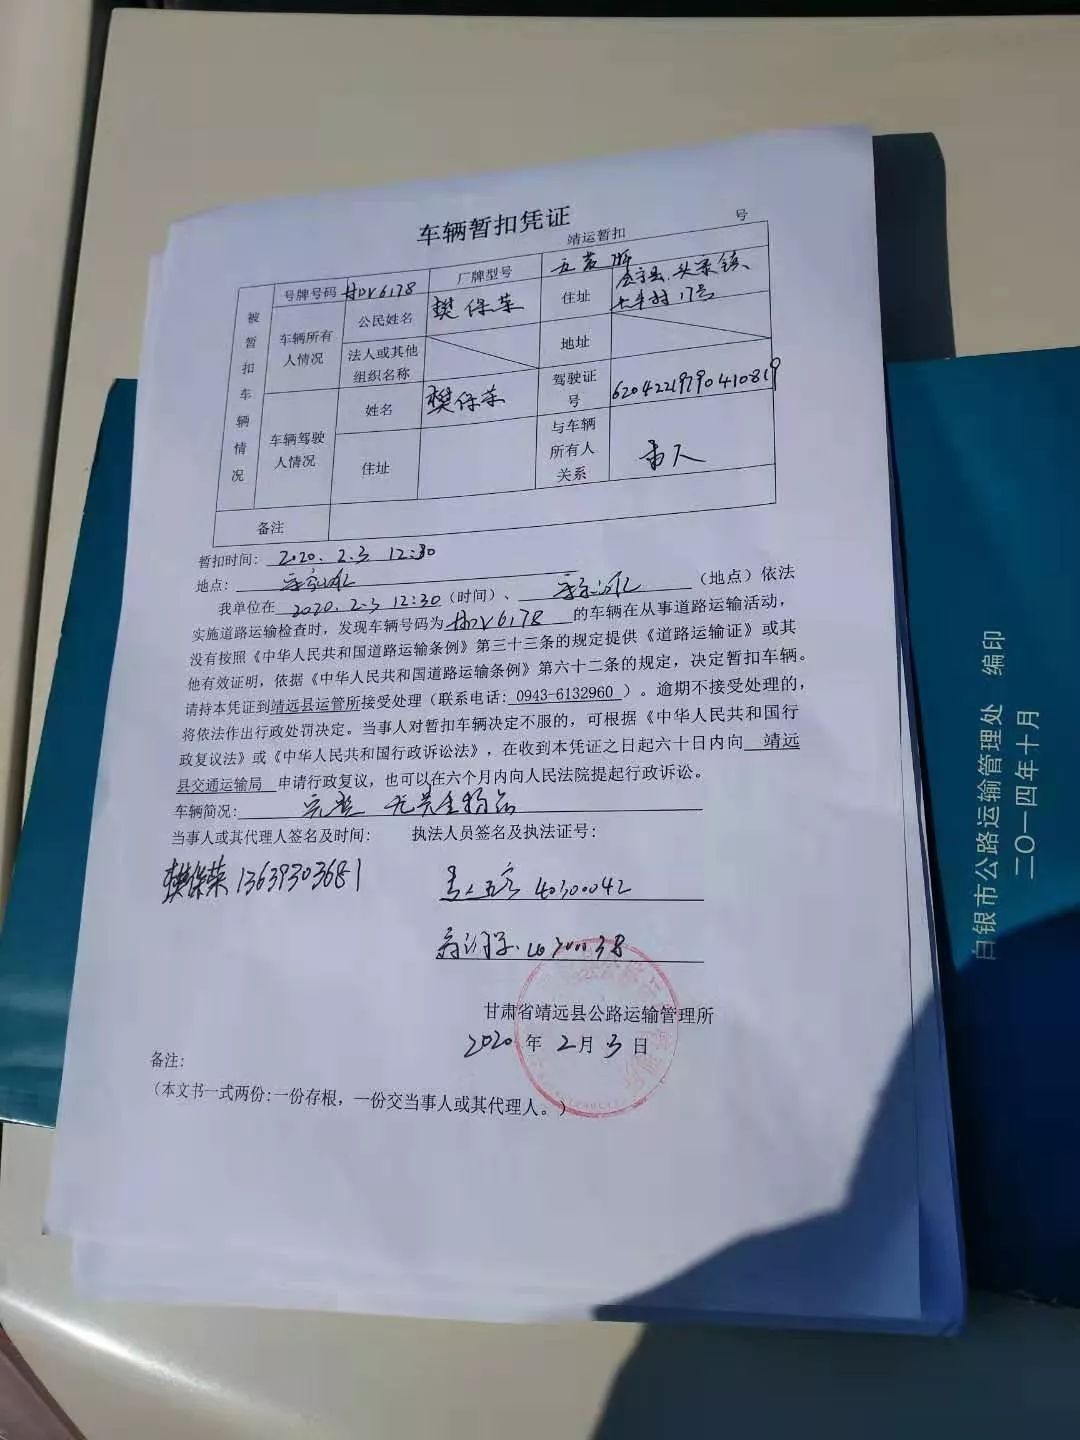 车辆暂扣凭证
靖运暂扣 号
被暂扣车辆情况
号牌号码 甘DV6178 厂牌型号 五菱牌
车辆所有人情况 公民姓名 樊保荣 住址 会宁县头寨镇、
17号
法人或其他组织名称 地址
车辆驾驶人情况 姓名 樊保荣 驾驶证号 62042219790410819
住址 与车辆所有人关系 本人
备注
暂扣时间: 2020.2.3 12:30
地点:
我单位在 2020.2.3 12:30 (时间)、 (地点)依法
实施道路运输检查时，发现车辆号码为 甘DV6178 的车辆在从事道路运输活动，
没有按照《中华人民共和国道路运输条例》第三十三条的规定提供《道路运输证》或其
他有效证明，依据《中华人民共和国道路运输条例》第六十二条的规定，决定暂扣车辆。
请持本凭证到靖远县运管所接受处理（联系电话: 0943-6132960 ）。逾期不接受处理的，
将依法作出行政处罚决定。当事人对暂扣车辆决定不服的，可根据《中华人民共和国行
政复议法》或《中华人民共和国行政诉讼法》，在收到本凭证之日起六十日内向 靖远
县交通运输局 申请行政复议，也可以在六个月内向人民法院提起行政诉讼。
车辆简况: 完整 无贵重物品
当事人或其代理人签名及时间: 执法人员签名及执法证号:
樊保荣 13639303681
40300042
甘肃省靖远县公路运输管理所
2020 年 2 月 3 日
备注:
(本文书一式两份:一份存根，一份交当事人或其代理人。)
白银市公路运输管理处 编印
二〇一四年十月